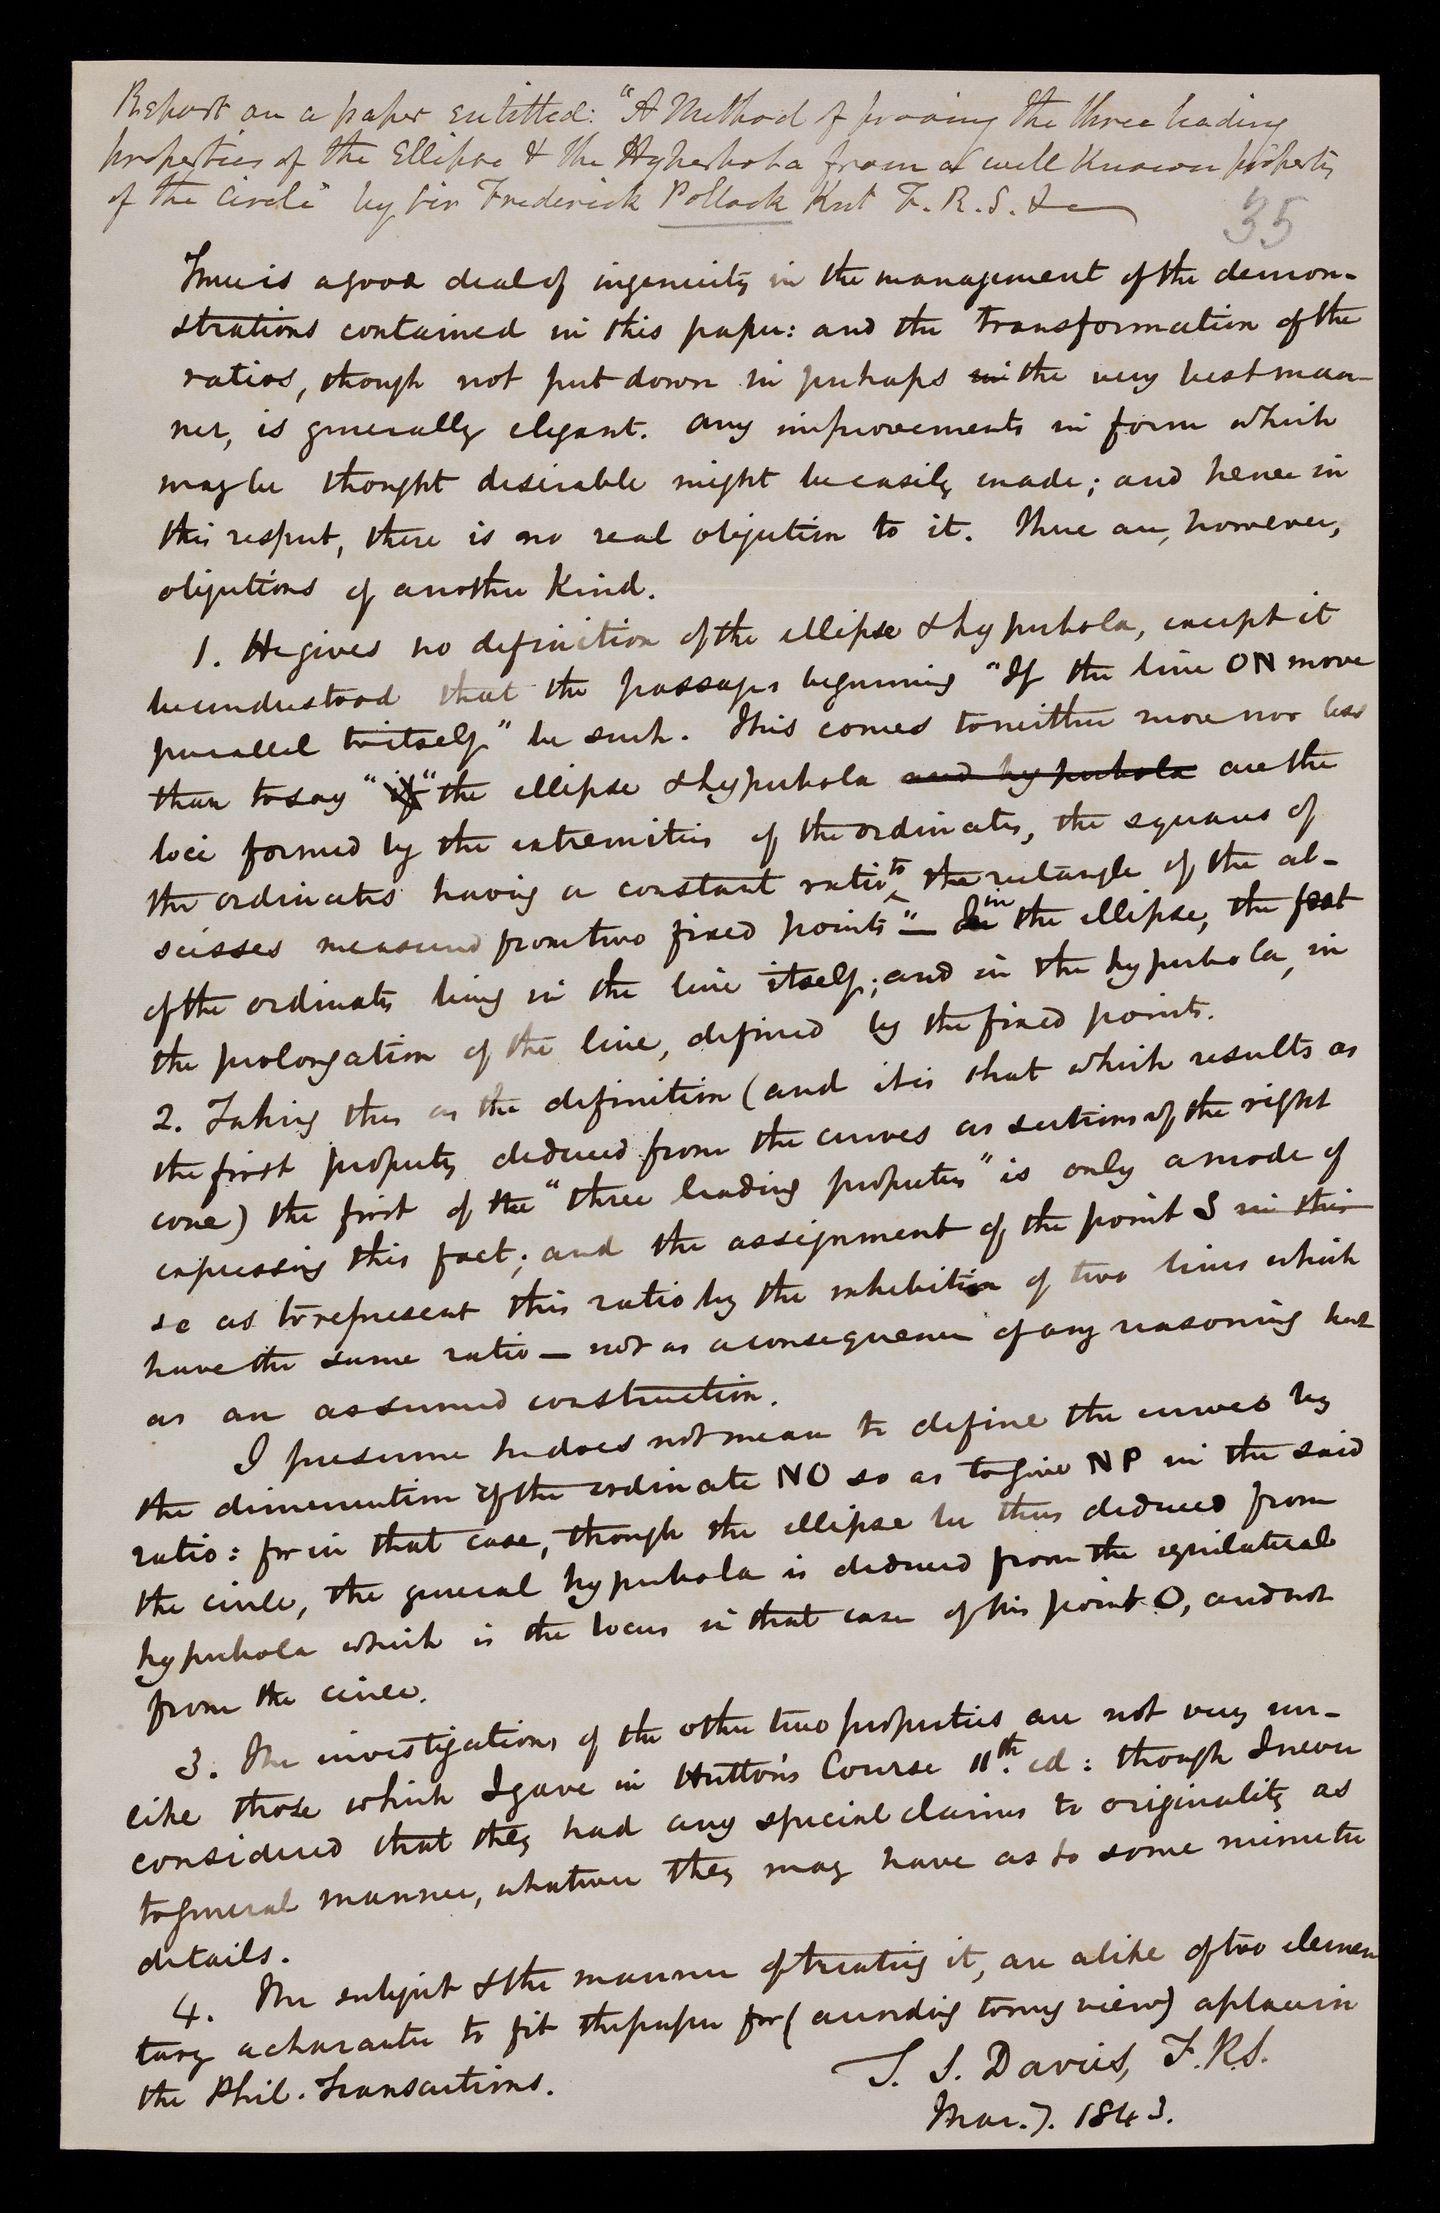 Report on a paper entitled: "A Method of proving the three leading
properties of the Ellipse & the Hyperbola from a well known property
of the Circle" by Sir Frederick Pollock Knt F.R.S. &c
35
There is a good deal of ingenuity in the management of the demon-
strations contained in this paper: and the transformation of the
ratios, though not put down in perhaps in the very best man-
ner, is generally elegant. Any improvements in form which
may be thought desirable might be easily made; and hence in
this respect, there is no real objection to it. There are, however,
objections of another kind.
1. He gives no definition of the ellipse & hyperbola, except it
be understood that the passages beginning "If the line ON move
parallel to itself" be such. This comes to neither more nor less
than to say "if "the ellipse & hyperbola and hyperbola are the
loci formed by the extremities of the ordinates, the squares of
the ordinates having a constant ratio to the rectangle of the ab-
scisses measured from two fixed points" — in the ellipse, the foot
of the ordinates being in the line itself; and in the hyperbola, in
the prolongation of the line, defined by the fixed points.
2. Taking this as the definition (and it is that which results as
the first property deduced from the curves as sections of the right
cone) the first of the "three leading properties" is only a mode of
expressing this fact; and the assignment of the point S in this
se as to represent this ratio by the exhibition of two lines which
have the same ratio — not as a consequence of any reasoning but
as an assumed construction.
I presume he does not mean to define the curves by
the diminution of the ordinate NO so as to give NP in the said
ratio: for in that case, though the ellipse be thus deduced from
the circle, the general hyperbola is deduced from the equilateral
hyperbola which is the locus in that case of his point O, and not
from the circle.
3. The investigations of the other two properties are not very un-
like those which I gave in Hutton's Course 11th. ed: though I never
considered that they had any special claims to originality as
to general manner, whatever they may have as to some minute
details.
4. The subject & the manner of treating it, are alike of too elemen
tary a character to fit the paper for (according to my view) a place in
the Phil. Transactions.
T. S. Davies, F.R.S.
Mar. 7. 1843.